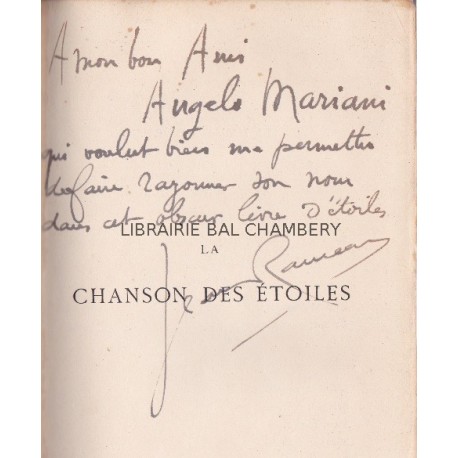 A mon bon Ami
Angelo Mariani
qui voulut bien me permettre
de faire rayonner son nom
dans cet obscur livre d'étoiles
LIBRAIRIE BAL CHAMBERY
LA
Jean Rameau
CHANSON DES ÉTOILES